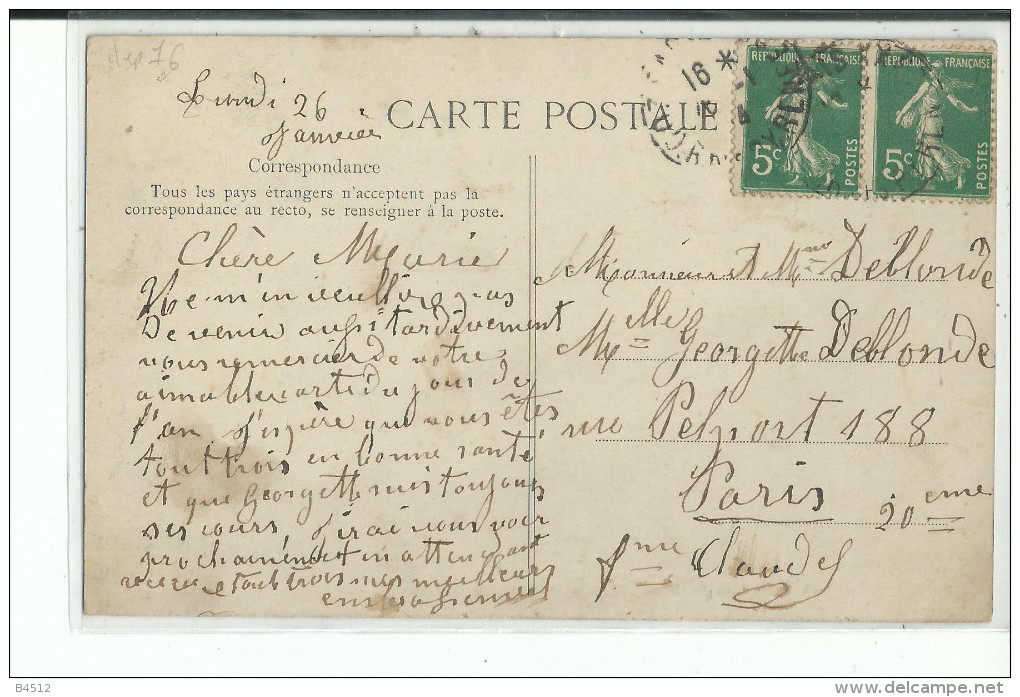 dep 76
Lundi 26
Janvier
CARTE POSTALE
Correspondance
Tous les pays étrangers n'acceptent pas la
correspondance au recto, se renseigner à la poste.
REPUBLIQUE FRANÇAISE
5c
POSTES
REPUBLIQUE FRANÇAISE
5c
POSTES
16 *
Chère Marie
Ne m'en veuillez pas
de venir aussi tardivement
vous remercier de votre
aimable carte du jour de
l'an j'espère que vous êtes
tout trois en bonne santé
et que Georgette suis toujours
ses cours, j'irai vous voir
prochainement en attendant
recevez tout trois mes meilleurs
Monsieur et Mme Deblonde
Melle Georgette Deblonde
rue Pelport 188
Paris 20eme
fme Claudel
B4512
www.delcampe.net